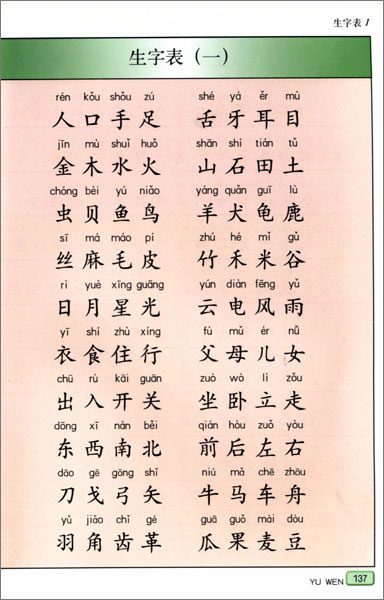 生字表 1
生字表（一）
rén kǒu shǒu zú shé yá ěr mù
人 口 手 足 舌 牙 耳 目
jīn mù shuǐ huǒ shān shí tián tǔ
金 木 水 火 山 石 田 土
chóng bèi yú niǎo yáng quǎn guī lù
虫 贝 鱼 鸟 羊 犬 龟 鹿
sī má máo pí zhú hé mǐ gǔ
丝 麻 毛 皮 竹 禾 米 谷
rì yuè xīng guāng yún diàn fēng yǔ
日 月 星 光 云 电 风 雨
yī shí zhù xíng fù mǔ ér nǚ
衣 食 住 行 父 母 儿 女
chū rù kāi guān zuò wò lì zǒu
出 入 开 关 坐 卧 立 走
dōng xī nán běi qián hòu zuǒ yòu
东 西 南 北 前 后 左 右
dāo gē gōng shǐ niú mǎ chē zhōu
刀 戈 弓 矢 牛 马 车 舟
yǔ jiǎo chǐ gé guā guǒ mài dòu
羽 角 齿 革 瓜 果 麦 豆
YU WEN 137